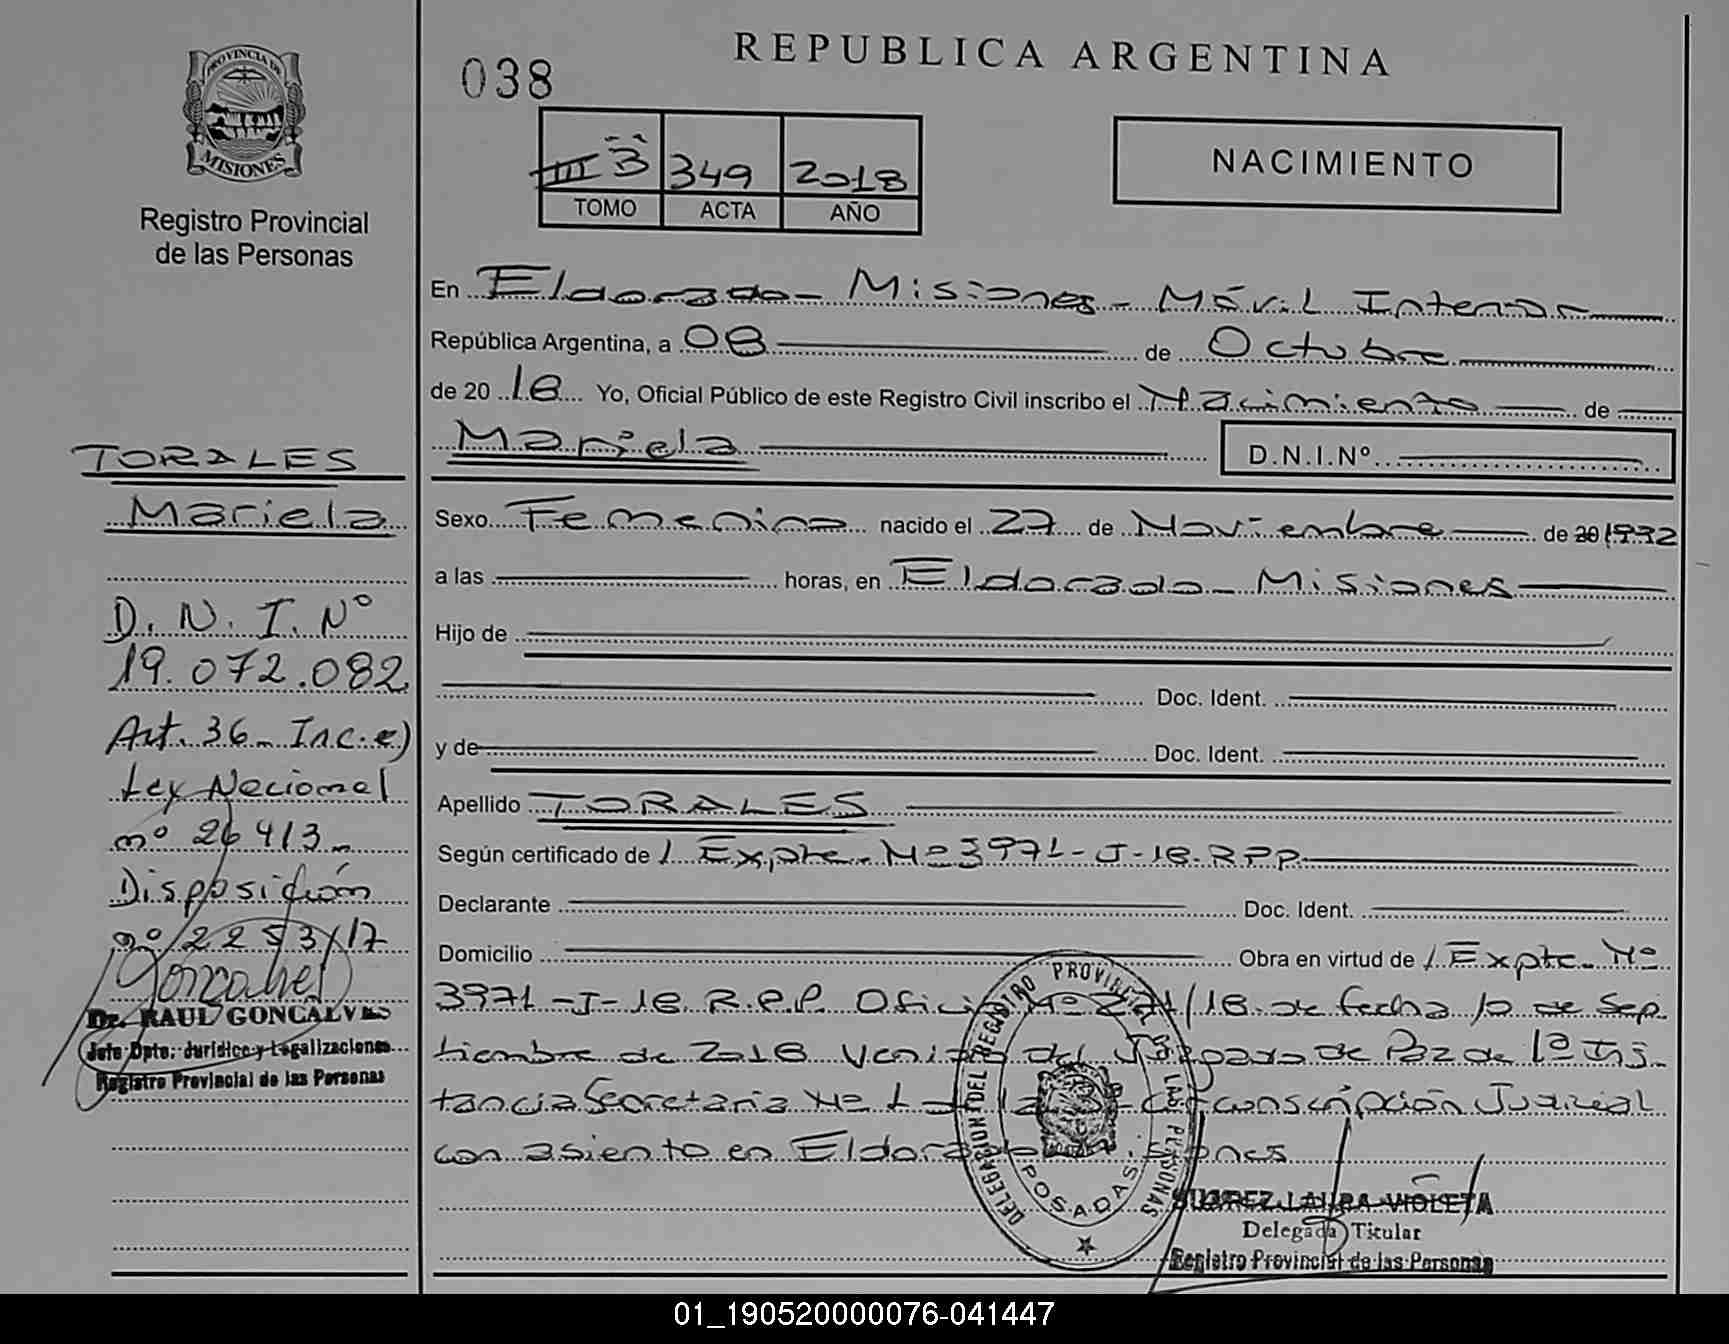 PROVINCIA DE
MISIONES
Registro Provincial
de las Personas
TORALES
Mariela
D.N.I.Nº
19.072.082
Art. 36- Inc. e)
Ley Nacional
nº 26413-
Disposición
nº 2253/17
Dr. RAUL GONCALVES
Jefe Dpto. Jurídico y Legalizaciones
Registro Provincial de las Personas
038
REPUBLICA ARGENTINA
III B 349 2018
TOMO ACTA AÑO
NACIMIENTO
En Eldorado - Misiones - Móvil Interior
República Argentina, a 08 de Octubre
de 2018 Yo, Oficial Público de este Registro Civil inscribo el Nacimiento de
Mariela D.N.I.Nº
Sexo Femenino nacido el 27 de Noviembre de 20 1992
a las horas, en Eldorado - Misiones
Hijo de
Doc. Ident.
y de Doc. Ident.
Apellido TORALES
Según certificado de / Expte. Nº 3971-J-18-R.P.P.
Declarante Doc. Ident.
Domicilio Obra en virtud de / Expte. Nº
3971-J-18 R.P.P. Oficio Nº /18 de fecha 10 de Sep
tiembre de 2018 Venido del Juzgado de Paz de 1ª Ins
tancia Secretaria Nº 1 de la circunscripción Judicial
con asiento en Eldorado Misiones
DELEGACION DEL REGISTRO PROVINCIAL DE LAS PERSONAS
POSADAS
SUAREZ LAURA VIOLETA
Delegada Titular
Registro Provincial de las Personas
01_190520000076-041447